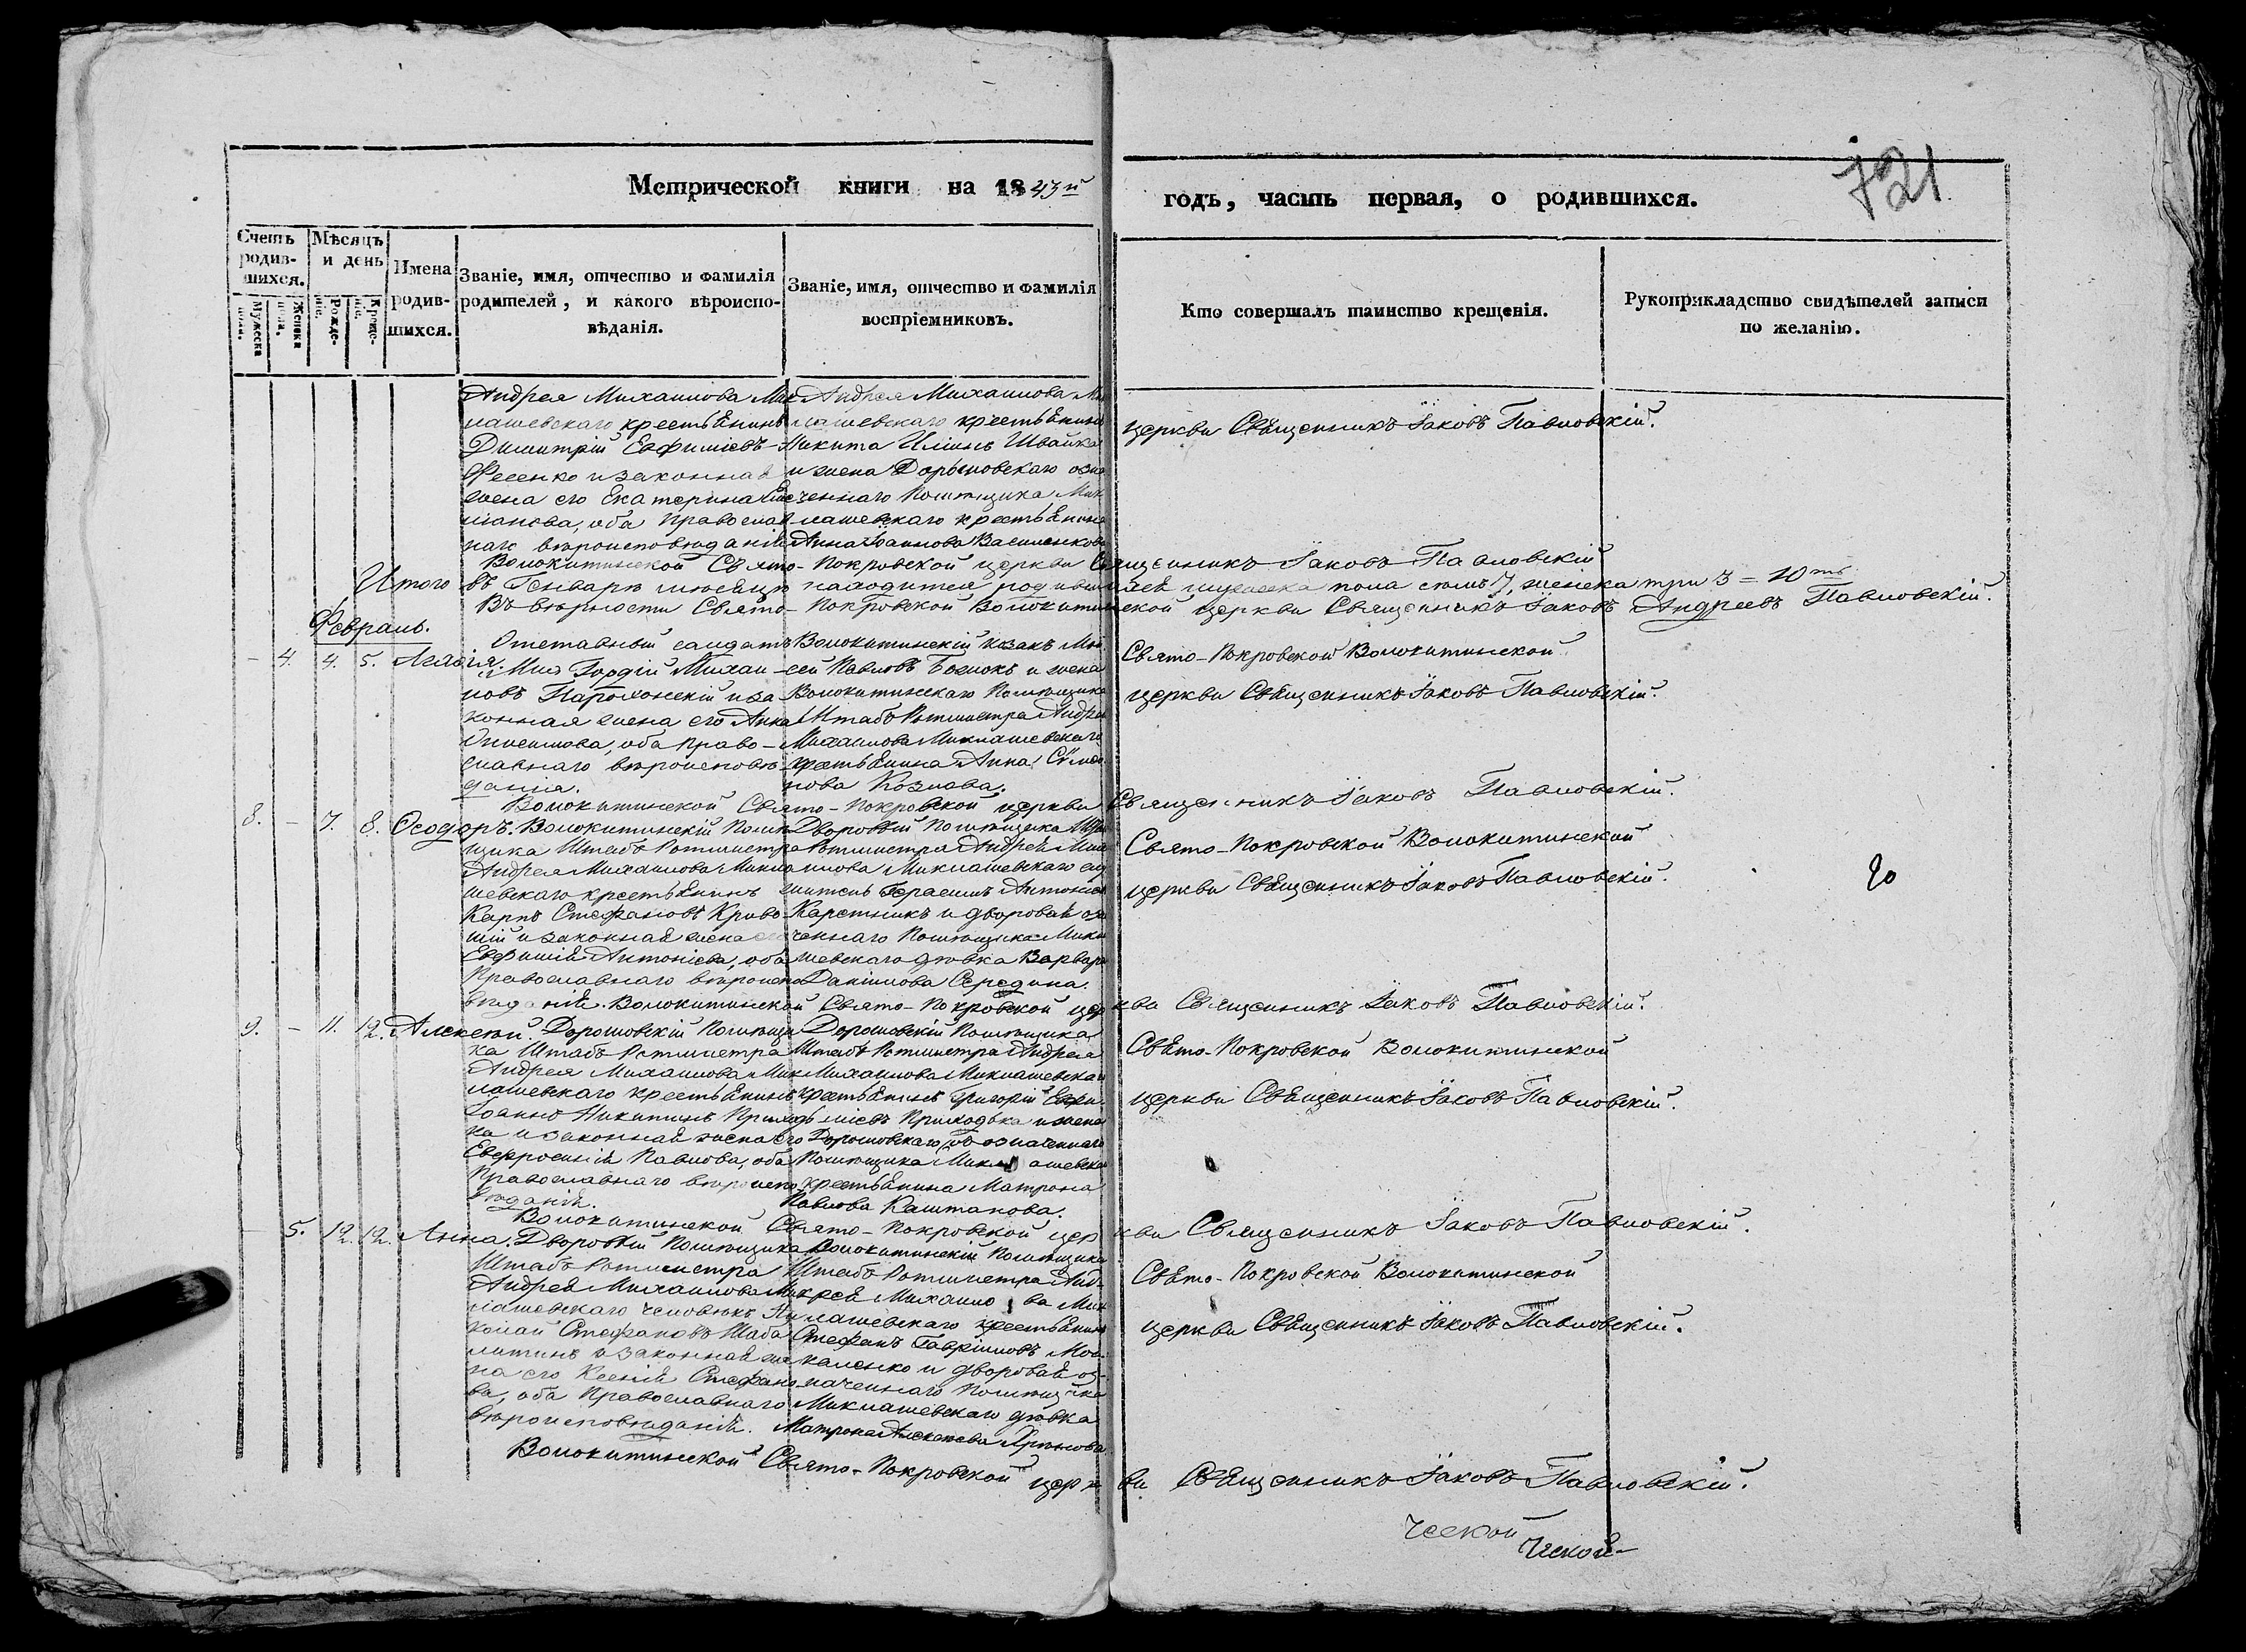 721
Метрической книги на 1843й годъ, часть первая, о родившихся.
Счетъ родившихся.
Мужеска пола.
Женска пола.
Мѣсяцъ и день
Рожденіе.
Крещеніе.
Имена родившихся.
Званіе, имя, отчество и фамилія родителей, и какого вѣроисповѣданія.
Званіе, имя, отчество и фамилія воспріемниковъ.
Кто совершалъ таинство крещенія.
Рукоприкладство свидѣтелей записи по желанію.
Андрея Михаилова Мик
лашевскаго крестьянинъ
Димитрій Евфиміевъ
Фесенко и законная
жена его Екатерина
оба православ
наго вѣроисповѣданія
Андрея Михаилова Ми
лашевскаго крестьянинъ
Никита Швайка
и жена Дорошовскаго озна
ченнаго Помѣщика Мик
лашевскаго крестьянина
Анна Іоаннова Василенкова
церкви Священникъ Іаковъ Павловскій.
Волокитинской Свято-Покровской церкви Священникъ Іаковъ Павловскій
Итого въ Генварѣ мѣсяцѣ находится родившихся мужеска пола семь 7, женска три 3 = 10ть
Въ вѣрности Свято-Покровской Волокитинской церкви Священникъ Іаковъ Андреевъ Павловскій.
Февраль.
– 4. 4. 5. Агафія.
Отставный солдатъ
Гордій Михаи
ловъ и за
конная жена его Анна
Онисимова, оба право-
славнаго вѣроисповѣ-
данія.
Волокитинскій козакъ Мои
сей Павловъ и жена
Волокитинскаго Помѣщика
Штабъ Ротмистра Андрея
Михаилова Миклашевскаго
крестьянина Анна Сѵмео
нова Козлова.
Свято-Покровской Волокитинской
церкви Священникъ Іаковъ Павловскій.
Волокитинской Свято-Покровской церкви Священникъ Іаковъ Павловскій.
8. – 7. 8. Ѳеодоръ.
Волокитинскій Помѣ
щика Штабъ Ротмистра
Андрея Михаилова Микла
шевскаго крестьянинъ
Карпъ Стефановъ Криво
шій и законная жена его
Евфимія Антоніева, оба
Православнаго вѣроиспо
вѣданія.
Дворовый Помѣщика Шта
Ротмистра Андрея Миха
илова Миклашевскаго слу
житель Герасимъ Антоніев
Каретникъ и дворовая озна
ченнаго Помѣщика Микла
шевскаго дѣвка Варвара
Даніилова Середина.
Свято-Покровской Волокитинской
церкви Священникъ Іаковъ Павловскій.
20
Волокитинской Свято-Покровской церкви Священникъ Іаковъ Павловскій.
9. – 11. 12. Алексѣй.
Дорошовскій Помѣщи
ка Штабъ Ротмистра
Андрея Михаилова Мик
лашевскаго крестьянинъ
Іоаннъ Никитинъ Приходь
ка и законная жена его
Евфросинія Павлова, оба
Православнаго вѣроиспо
вѣданія.
Дорошовскій Помѣщика
Штабъ Ротмистра Андрея
Михаилова Миклашевскаго
крестьянинъ Григорій Евфи
міевъ Приходька и жена
Дорошовскаго, означеннаго
Помѣщика Миклашевска
крестьянина Матрона
Павлова Каштанова.
Свято-Покровской Волокитинской
церкви Священникъ Іаковъ Павловскій.
Волокитинской Свято-Покровской церкви Священникъ Іаковъ Павловскій.
– 5. 12. 12. Анна.
Дворовый Помѣщика
Штабъ Ротмистра
Андрея Михаилова Мик
лашевскаго человѣкъ Ни
колай Стефановъ Шаба
литинъ и законная же
на его Ксенія Стефано
ва, оба Православнаго
вѣроисповѣданія.
Волокитинскій Помѣщика
Штабъ Ротмистра Анд-
рея Михаилова Мик
лашевскаго крестьянинъ
Стефанъ Гавріиловъ Мос
каленко и дворовая оз-
наченнаго Помѣщика
Миклашевскаго дѣвка
Матрона Алексѣева
Свято-Покровской Волокитинской
церкви Священникъ Іаковъ Павловскій.
Волокитинской Свято-Покровской церкви Священникъ Іаковъ Павловскій.
ческой
ческой